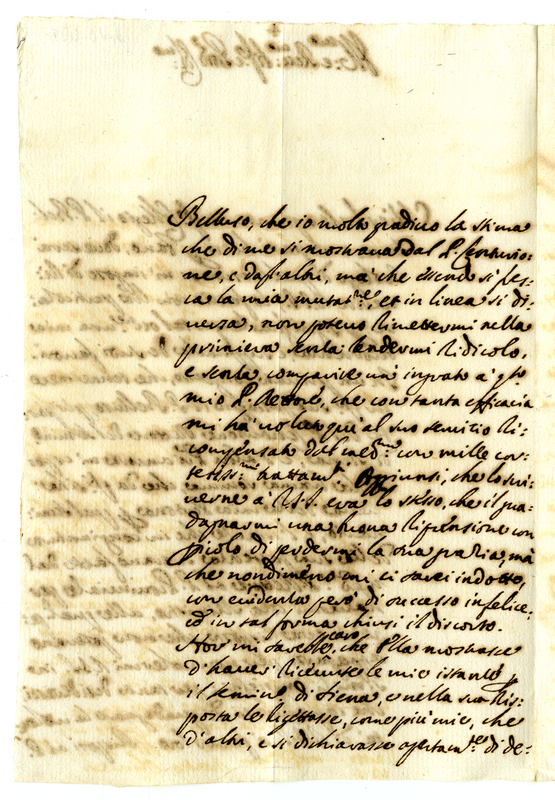 Belluso, che io molto gradivo la stima
che di me si mostrava dal P. Centurio-
ne, e dagl'altri, mà che essend si fat-
ta la mia mutat.ne, et in linea si di-
versa, non potevo rimettermi nella
primiera senza rendermi ridicolo,
e senza comparire un' ingrato à q.sto
mio P. , che con tanta efficacia
mi hà voluto qui al suo servitio ri-
compensato dal med.mo con mille cor-
tesiss.mi trattam.ti. Aggiunsi, che lo scri-
verne à V.S. era lo stesso, che il gua-
dagnarmi una nuova riprensione con
picolo di perdermi la sua gratia, mà
che nondimeno mi ci sarei indotto,
con evidenza però di successo infelice,
et in tal forma chiusi il discorso.
Hor mi sarebbe caro, che Ella mostrasse
d'haver ricevute le mie istanze p
il temine di Siena, e nella sua Ris-
posta le rigettasse, come più mie, che
d'altri, e si dichiarasse apertam.te di de-